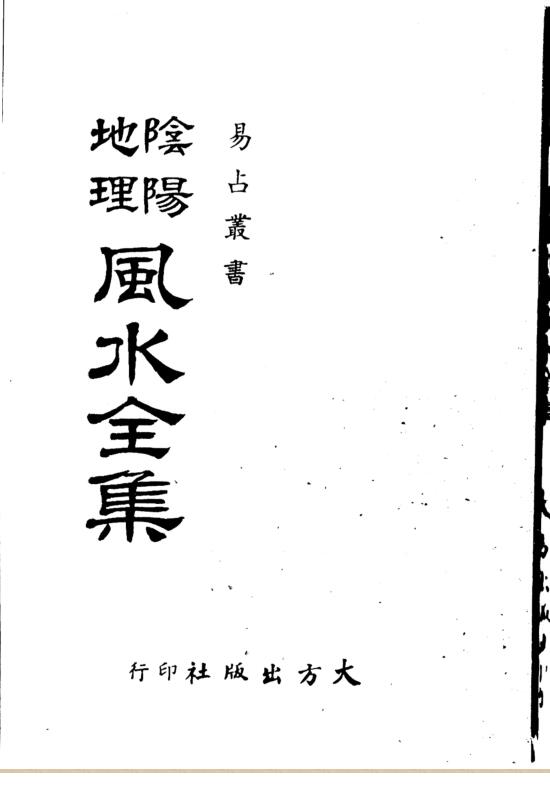 易占叢書
陰陽
地理
風水全集
大方出版社印行